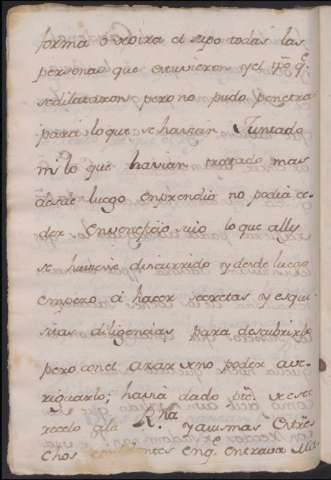 forma o xoixa el supo todas las
personas que estuvieron y el tpo q.e
se dilataron pero no pudo penetra
para lo que se havian Juntado
ni lo que havian tratado mas
desde luego enprendio no podia ce-
der En veneficio suio lo que alli
se huviese discurrido y desde luego
empezo a hacer secretas y esqui-
sitas diligencias para descubrirlo
pero con el azar de no poder ave-
riguarlo; havia dado
recelo a la R.na y a us mas Estre-
chos en q.e entrava